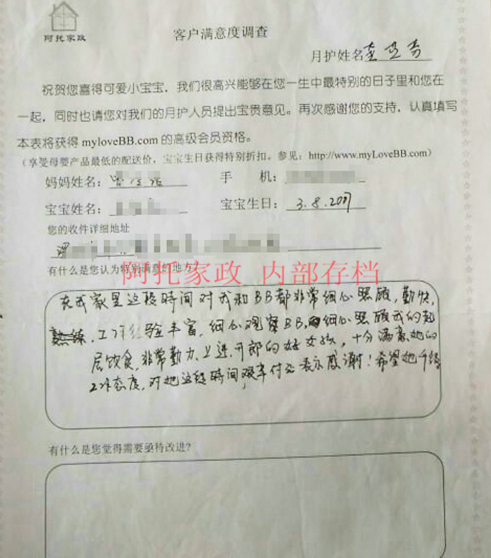 阿托家政
客户满意度调查
月护姓名
祝贺您喜得可爱小宝宝，我们很高兴能够在您一生中最特别的日子里和您在
一起，同时也请您对我们的月护人员提出宝贵意见。再次感谢您的支持，认真填写
本表将获得 myloveBB.com 的高级会员资格。
(享受母婴产品最低的配送价，宝宝生日获得特别折扣。参见：http://www.myLoveBB.com)
妈妈姓名： 手 机：
宝宝姓名： 宝宝生日： 3.8.2007
您的收件详细地址
有什么是您认为特别满意的地方？
阿托家政 内部存档
在我家里这段时间对我和BB都非常细心照顾，勤快，
熟练，工作经验丰富，细心观察BB，细心照顾我的起
居饮食，非常勤力，上进，开朗的好女孩，十分满意她的
工作态度，对她这段时间艰辛付出表示感谢！希望她继续
有什么是您觉得需要亟待改进？